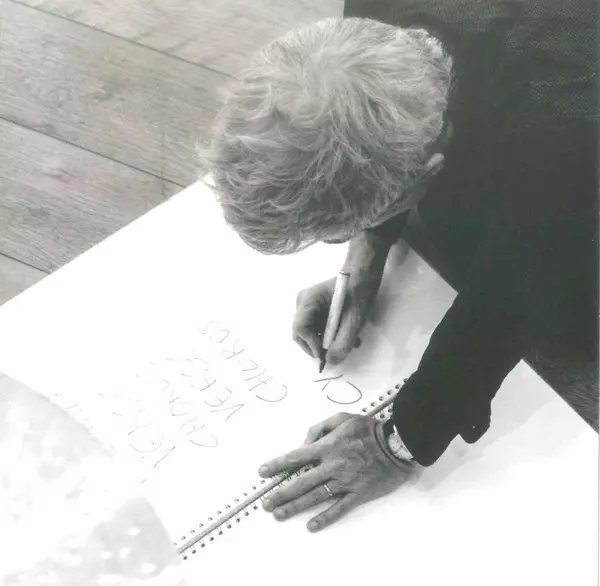 VERSE
CHORU
VERS
CHORUS
CY